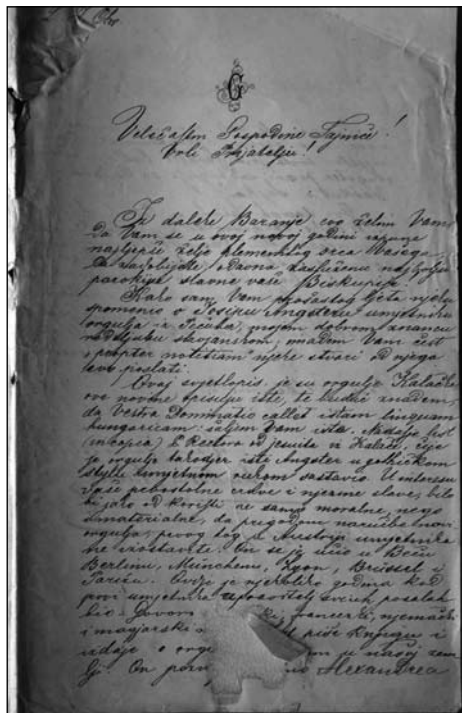 G
Velečastni Gospodine Tajniče!
Vrli Prijatelju!
Iz daleke Baranje evo želim Vam,
da Vam se u ovoj novoj godini
najljepše želje plemenitog srca Vašega
da zadobijete odavna zasluženu najbolju
parokiju slavne vaše Biskupije!
Kako sam Vam prošastog ljeta
spomenio o Josipu Angsteru umjetniku
orgulja iz Pečuha, mojem dobrom znancu
rodoljubu slavjanskom, imadem Vam čest
"propter notitiam" njeke stvari od njega
evo poslati.
Ovaj svjetlopis, je su orgulje Kalačke
ove novine opisuje iste, te budući znadem,
da Vestra Dominatio callet istam linguam
hungaricam: šaljem Vam iste. Nadalje list
(in copia) P. Rectora od jesuita iz Kalače, čije
je orgulje takodjer isti Angster u gothičkom
stylu umjetnom rukom sastavio. U interesu
Vaše prvostolne crkve i njezine slave, bilo
bi jako od koristi ne samo moralne, nego
i materialne, da prigodom naručbe novi
orgulja, prvog tog u Austriji umjetnika
ne izostavite. On se je učio u Beču
Berlinu, Münchenu, Lyon, Brüssel i
Parizu. Ovdje je njekoliko godina kod
prvi umjetnika upravitelj svih posalah
bio. Govori francezki, njemački
i magjarski piše knjigu i
izdaje o u našoj zem
lji. On Alexandrea